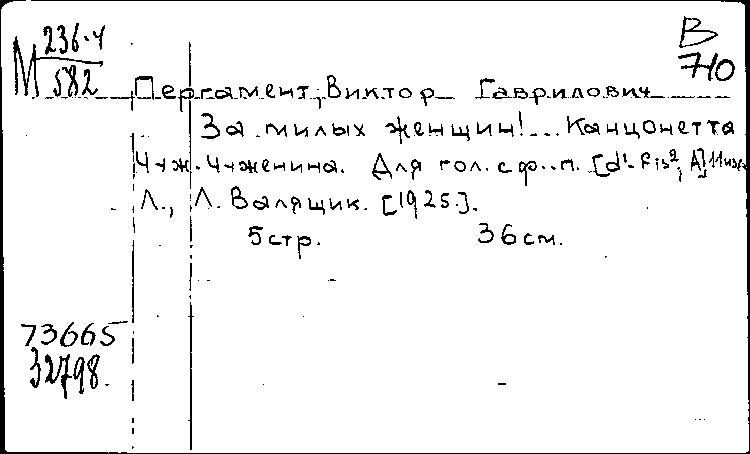 М 236-4
582
В
710
Пергамент, Виктор Гаврилович
За милых женщин!... Канцонетта
Ч-ж. Ч-женина. Для гол. с ф.-п. [d¹-fis², A]
Л., Л. Валящик. [1925].
5 стр. 36 см.
73665
32798.